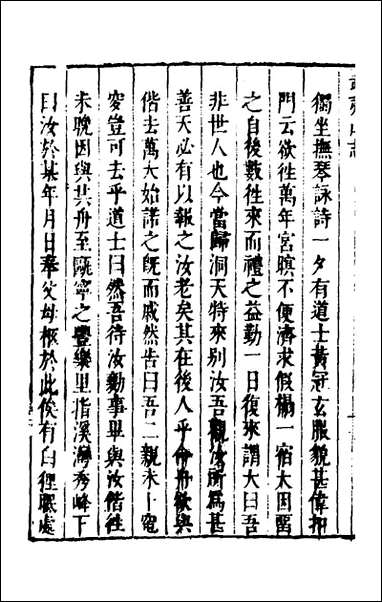 獨坐撫琴詠詩一夕有道士黃冠玄服貌甚偉扣
門云欲徃萬年宮暝不便濟求假榻一宿大因畱
之自後數徃來而禮之益勤一日復來謂大曰吾
非世人也今當歸洞天特來别汝吾觀汝所爲甚
善天必有以報之汝老矣其在後人乎今舟欲與
偕去萬大始諾之旣而戚然告曰吾二親未卜窀
窆豈可去乎道士曰然吾待汝勷事畢與汝偕徃
未晚因與共舟至甌寧之豐樂里指溪灣秀峰下
曰汝於某年月日奉父母柩於此俟有白狸眠處